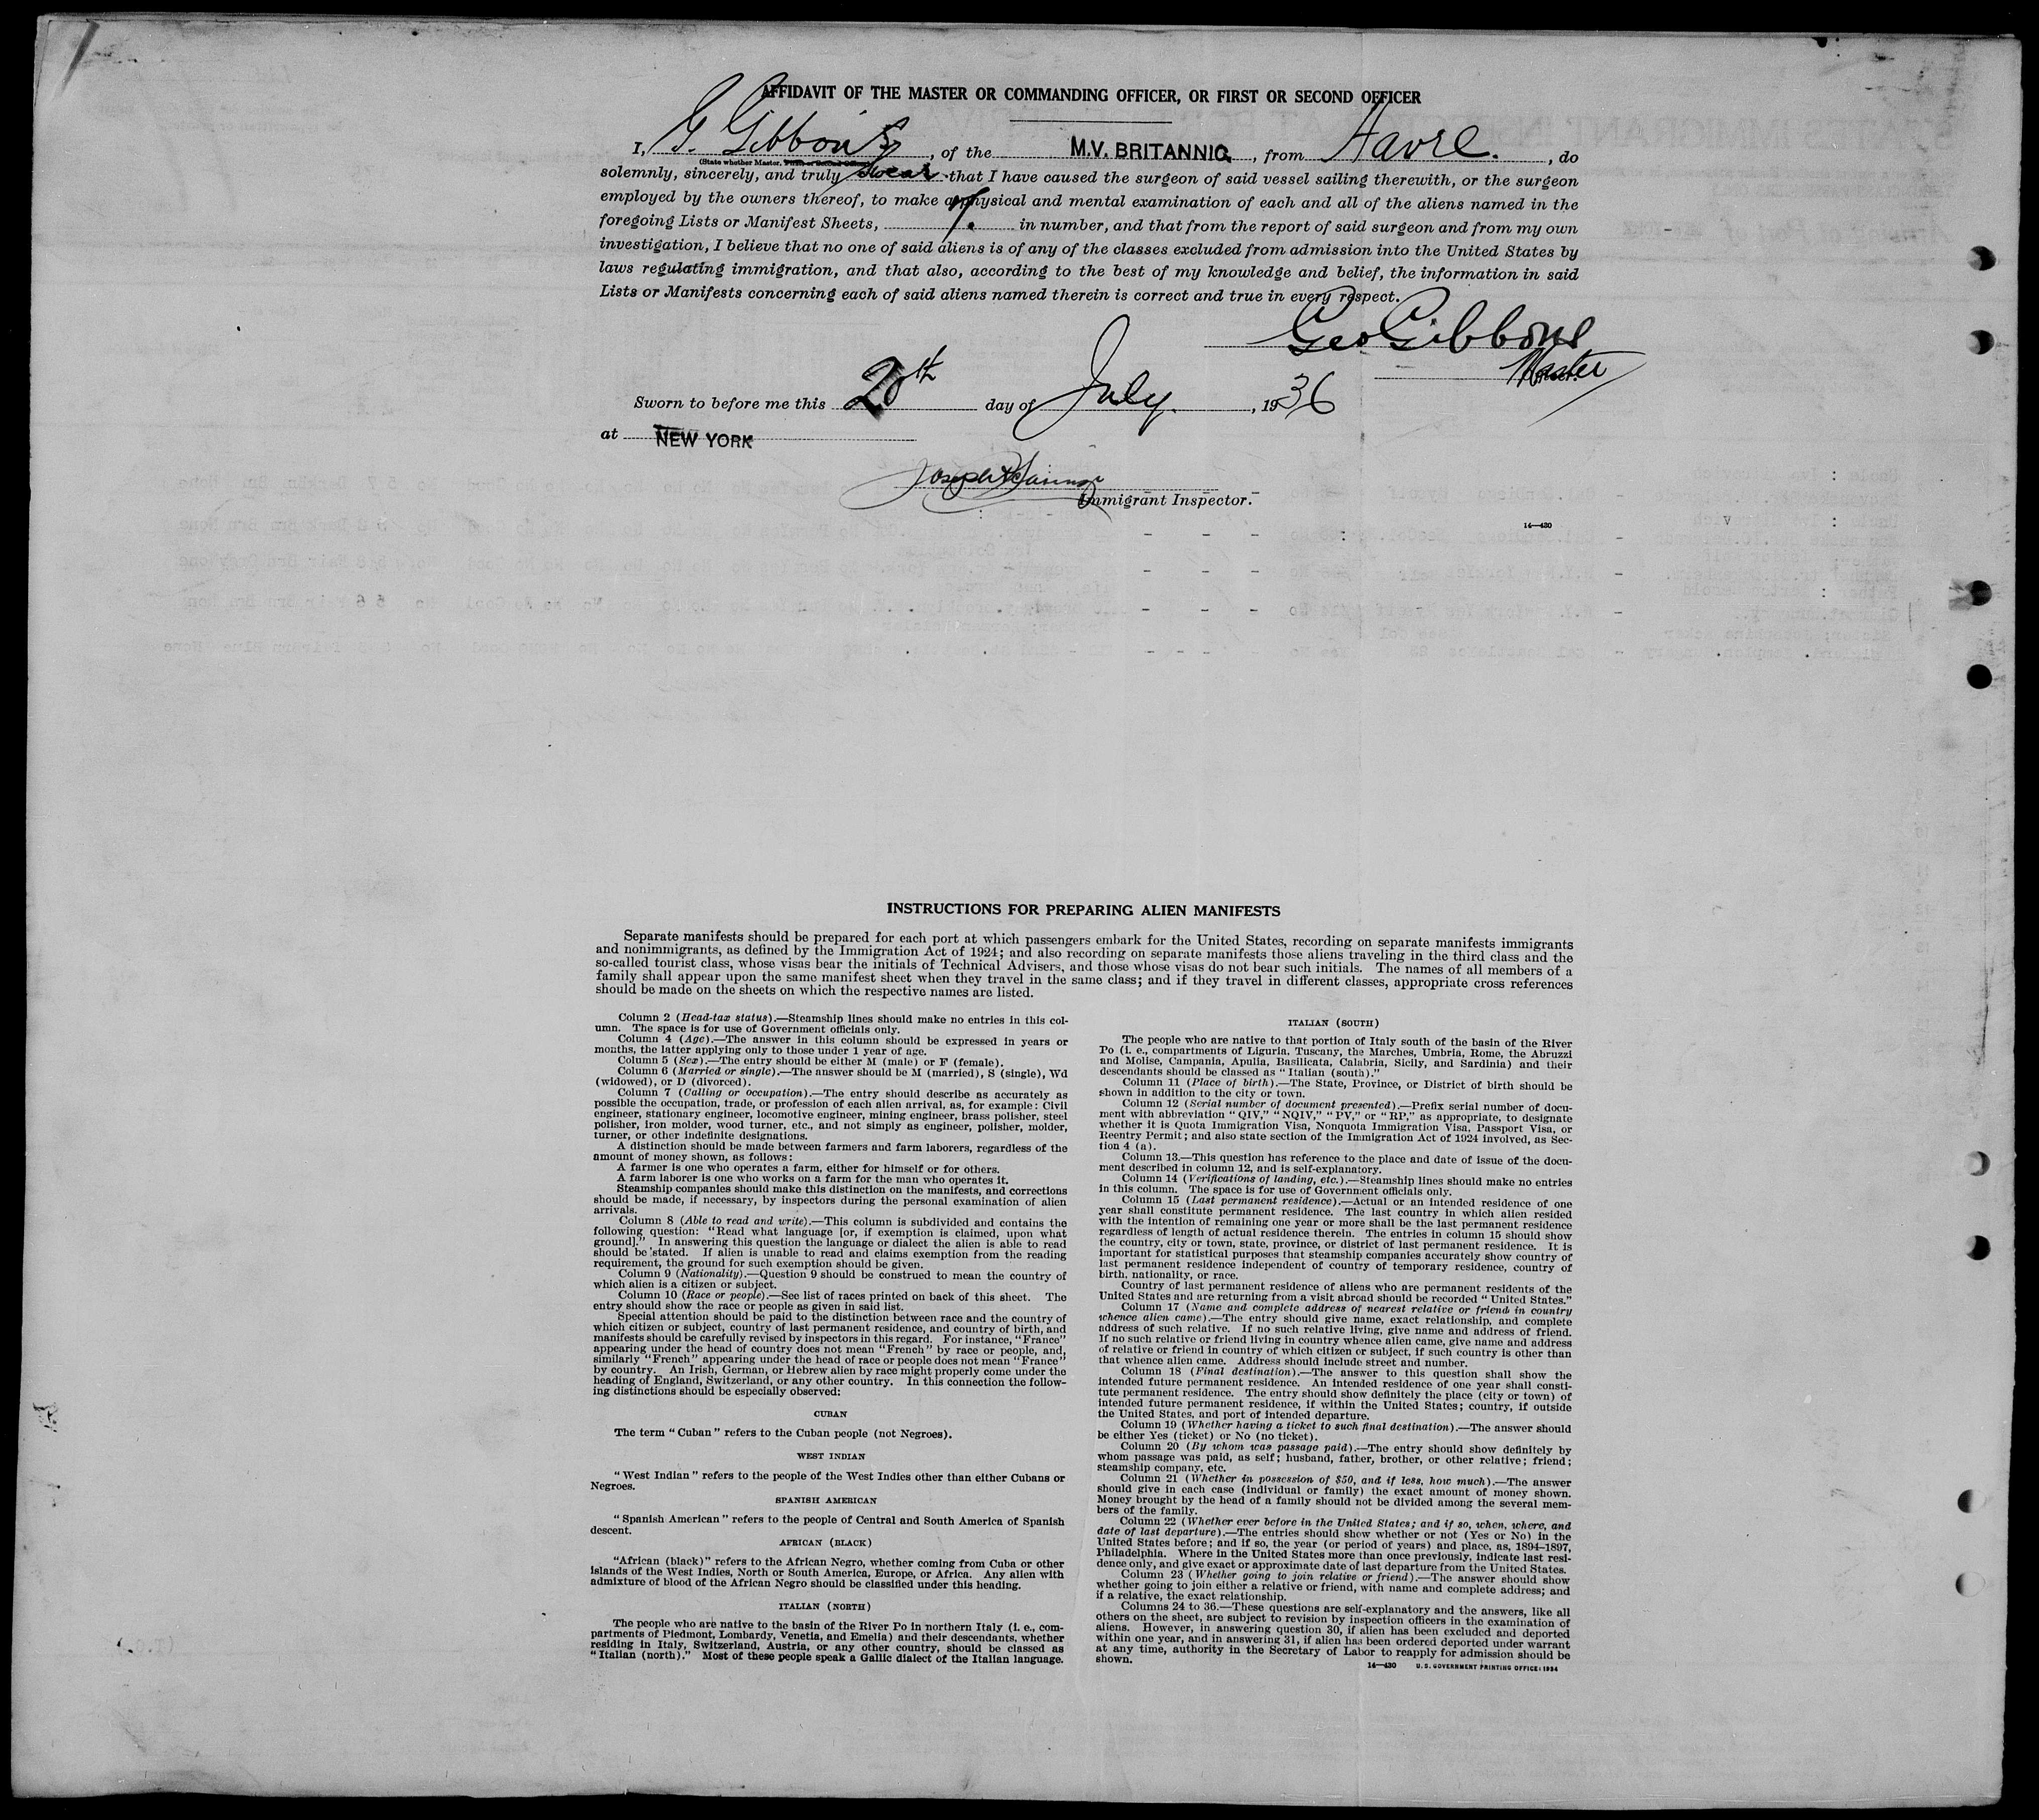 AFFIDAVIT OF THE MASTER OR COMMANDING OFFICER, OR FIRST OR SECOND OFFICER
I, G. Gibbons, of the M.V. BRITANNIC, from Havre., do
(State whether Master, First or Second Officer)
solemnly, sincerely, and truly swear that I have caused the surgeon of said vessel sailing therewith, or the surgeon
employed by the owners thereof, to make a physical and mental examination of each and all of the aliens named in the
foregoing Lists or Manifest Sheets, in number, and that from the report of said surgeon and from my own
investigation, I believe that no one of said aliens is of any of the classes excluded from admission into the United States by
laws regulating immigration, and that also, according to the best of my knowledge and belief, the information in said
Lists or Manifests concerning each of said aliens named therein is correct and true in every respect.
Geo Gibbons
Master
Officer.
Sworn to before me this 20th day of July, 1936
at NEW YORK
Joseph
Immigrant Inspector.
14—430
INSTRUCTIONS FOR PREPARING ALIEN MANIFESTS
Separate manifests should be prepared for each port at which passengers embark for the United States, recording on separate manifests immigrants
and nonimmigrants, as defined by the Immigration Act of 1924; and also recording on separate manifests those aliens traveling in the third class and the
so-called tourist class, whose visas bear the initials of Technical Advisers, and those whose visas do not bear such initials. The names of all members of a
family shall appear upon the same manifest sheet when they travel in the same class; and if they travel in different classes, appropriate cross references
should be made on the sheets on which the respective names are listed.
Column 2 (Head-tax status).—Steamship lines should make no entries in this col-
umn. The space is for use of Government officials only.
Column 4 (Age).—The answer in this column should be expressed in years or
months, the latter applying only to those under 1 year of age.
Column 5 (Sex).—The entry should be either M (male) or F (female).
Column 6 (Married or single).—The answer should be M (married), S (single), Wd
(widowed), or D (divorced).
Column 7 (Calling or occupation).—The entry should describe as accurately as
possible the occupation, trade, or profession of each alien arrival, as, for example: Civil
engineer, stationary engineer, locomotive engineer, mining engineer, brass polisher, steel
polisher, iron molder, wood turner, etc., and not simply as engineer, polisher, molder,
turner, or other indefinite designations.
A distinction should be made between farmers and farm laborers, regardless of the
amount of money shown, as follows:
A farmer is one who operates a farm, either for himself or for others.
A farm laborer is one who works on a farm for the man who operates it.
Steamship companies should make this distinction on the manifests, and corrections
should be made, if necessary, by inspectors during the personal examination of alien
arrivals.
Column 8 (Able to read and write).—This column is subdivided and contains the
following question: "Read what language [or, if exemption is claimed, upon what
ground]." In answering this question the language or dialect the alien is able to read
should be stated. If alien is unable to read and claims exemption from the reading
requirement, the ground for such exemption should be given.
Column 9 (Nationality).—Question 9 should be construed to mean the country of
which alien is a citizen or subject.
Column 10 (Race or people).—See list of races printed on back of this sheet. The
entry should show the race or people as given in said list.
Special attention should be paid to the distinction between race and the country of
which citizen or subject, country of last permanent residence, and country of birth, and
manifests should be carefully revised by inspectors in this regard. For instance, "France"
appearing under the head of country does not mean "French" by race or people, and,
similarly "French" appearing under the head of race or people does not mean "France"
by country. An Irish, German, or Hebrew alien by race might properly come under the
heading of England, Switzerland, or any other country. In this connection the follow-
ing distinctions should be especially observed:
CUBAN
The term "Cuban" refers to the Cuban people (not Negroes).
WEST INDIAN
"West Indian" refers to the people of the West Indies other than either Cubans or
Negroes.
SPANISH AMERICAN
"Spanish American" refers to the people of Central and South America of Spanish
descent.
AFRICAN (BLACK)
"African (black)" refers to the African Negro, whether coming from Cuba or other
islands of the West Indies, North or South America, Europe, or Africa. Any alien with
admixture of blood of the African Negro should be classified under this heading.
ITALIAN (NORTH)
The people who are native to the basin of the River Po in northern Italy (i. e., com-
partments of Piedmont, Lombardy, Venetia, and Emelia) and their descendants, whether
residing in Italy, Switzerland, Austria, or any other country, should be classed as
"Italian (north)." Most of these people speak a Gallic dialect of the Italian language.
ITALIAN (SOUTH)
The people who are native to that portion of Italy south of the basin of the River
Po (i. e., compartments of Liguria, Tuscany, the Marches, Umbria, Rome, the Abruzzi
and Molise, Campania, Apulia, Basilicata, Calabria, Sicily, and Sardinia) and their
descendants should be classed as "Italian (south)."
Column 11 (Place of birth).—The State, Province, or District of birth should be
shown in addition to the city or town.
Column 12 (Serial number of document presented).—Prefix serial number of docu-
ment with abbreviation "QIV," "NQIV," "PV," or "RP," as appropriate, to designate
whether it is Quota Immigration Visa, Nonquota Immigration Visa, Passport Visa, or
Reentry Permit; and also state section of the Immigration Act of 1924 involved, as Sec-
tion 4 (a).
Column 13.—This question has reference to the place and date of issue of the docu-
ment described in column 12, and is self-explanatory.
Column 14 (Verifications of landing, etc.).—Steamship lines should make no entries
in this column. The space is for use of Government officials only.
Column 15 (Last permanent residence).—Actual or an intended residence of one
year shall constitute permanent residence. The last country in which alien resided
with the intention of remaining one year or more shall be the last permanent residence
regardless of length of actual residence therein. The entries in column 15 should show
the country, city or town, state, province, or district of last permanent residence. It is
important for statistical purposes that steamship companies accurately show country of
last permanent residence independent of country of temporary residence, country of
birth, nationality, or race.
Country of last permanent residence of aliens who are permanent residents of the
United States and are returning from a visit abroad should be recorded "United States."
Column 17 (Name and complete address of nearest relative or friend in country
whence alien came).—The entry should give name, exact relationship, and complete
address of such relative. If no such relative living, give name and address of friend.
If no such relative or friend living in country whence alien came, give name and address
of relative or friend in country of which citizen or subject, if such country is other than
that whence alien came. Address should include street and number.
Column 18 (Final destination).—The answer to this question shall show the
intended future permanent residence. An intended residence of one year shall consti-
tute permanent residence. The entry should show definitely the place (city or town) of
intended future permanent residence, if within the United States; country, if outside
the United States, and port of intended departure.
Column 19 (Whether having a ticket to such final destination).—The answer should
be either Yes (ticket) or No (no ticket).
Column 20 (By whom was passage paid).—The entry should show definitely by
whom passage was paid, as self; husband, father, brother, or other relative; friend;
steamship company, etc.
Column 21 (Whether in possession of $50, and if less, how much).—The answer
should give in each case (individual or family) the exact amount of money shown.
Money brought by the head of a family should not be divided among the several mem-
bers of the family.
Column 22 (Whether ever before in the United States; and if so, when, where, and
date of last departure).—The entries should show whether or not (Yes or No) in the
United States before; and if so, the year (or period of years) and place, as, 1894–1897,
Philadelphia. Where in the United States more than once previously, indicate last resi-
dence only, and give exact or approximate date of last departure from the United States.
Column 23 (Whether going to join relative or friend).—The answer should show
whether going to join either a relative or friend, with name and complete address; and
if a relative, the exact relationship.
Columns 24 to 36.—These questions are self-explanatory and the answers, like all
others on the sheet, are subject to revision by inspection officers in the examination of
aliens. However, in answering question 30, if alien has been excluded and deported
within one year, and in answering 31, if alien has been ordered deported under warrant
at any time, authority in the Secretary of Labor to reapply for admission should be
shown.
14—430 U. S. GOVERNMENT PRINTING OFFICE: 1934